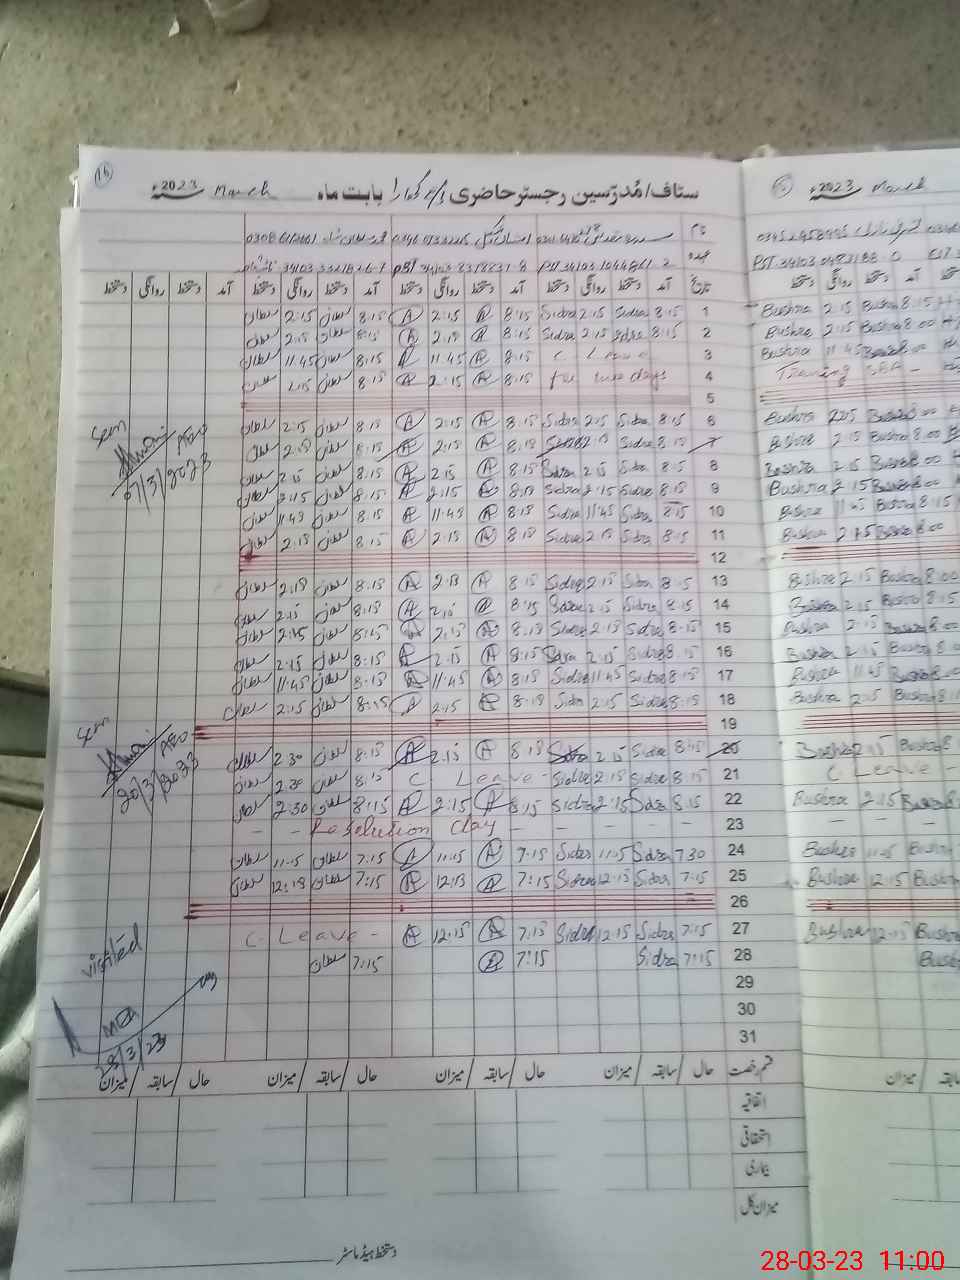 16
سٹاف/مُدرّسین رجسٹر حاضری بابت ماہ March 2023ء
March 2023ء
نام
عہدہ
PST 34103
PST 34103
تاریخ آمد دستخط روانگی دستخط آمد دستخط روانگی دستخط آمد دستخط روانگی دستخط آمد دستخط روانگی دستخط
1 8:15 Sidra 2:15 Sidra 8:15 A 2:15 A 8:15 سلطان 2:15 سلطان
Bushra 2:15 Bushra 8:15
2 8:15 Sidra 2:15 Sidra 8:15 A 2:15 A 8:15 سلطان 2:15 سلطان
Bushra 2:15 Bushra 8:00
3 C Leave 8:15 A 11:45 A 8:15 سلطان 11:45 سلطان
Bushra 11:45 Bushra 8:00
4 for two days 8:15 A 2:15 A 8:15 سلطان 2:15 سلطان
Training
5
6 8:15 Sidra 2:15 Sidra 8:15 A 2:15 A 8:15 سلطان 2:15 سلطان
Bushra 2:15 Bushra 8:00
7 8:15 Sidra 2:15 Sidra 8:15 A 2:15 A 8:15 سلطان 2:15 سلطان
Bushra 2:15 Bushra 8:00
Seen
AEO
07/3/2023
8 8:15 Sidra 2:15 Sidra 8:15 A 2:15 A 8:15 سلطان 2:15 سلطان
Bushra 2:15 Bushra 8:00
9 8:15 Sidra 2:15 Sidra 8:15 A 2:15 A 8:15 سلطان 2:15 سلطان
Bushra 2:15 Bushra 8:00
10 8:15 Sidra 11:45 Sidra 8:15 A 11:45 A 8:15 سلطان 11:45 سلطان
Bushra 11:45 Bushra 8:15
11 8:15 Sidra 2:15 Sidra 8:15 A 2:15 A 8:15 سلطان 2:15 سلطان
Bushra 2:15 Bushra 8:00
12
13 8:15 Sidra 2:15 Sidra 8:15 A 2:15 A 8:15 سلطان 2:15 سلطان
Bushra 2:15 Bushra 8:00
14 8:15 Sidra 2:15 Sidra 8:15 A 2:15 A 8:15 سلطان 2:15 سلطان
Bushra 2:15 Bushra 8:15
15 8:15 Sidra 2:15 Sidra 8:15 A 2:15 A 8:15 سلطان 2:15 سلطان
Bushra 2:15 Bushra 8:00
16 8:15 Sidra 2:15 Sidra 8:15 A 2:15 A 8:15 سلطان 2:15 سلطان
Bushra 2:15 Bushra 8:00
17 8:15 Sidra 11:45 Sidra 8:15 A 11:45 A 8:15 سلطان 11:45 سلطان
Bushra 11:45 Bushra 8:00
18 8:15 Sidra 2:15 Sidra 8:15 A 2:15 A 8:15 سلطان 2:15 سلطان
Bushra 2:15 Bushra 8:15
19
20 8:15 Sidra 2:15 Sidra 8:15 A 2:15 A 8:15 سلطان 2:30 سلطان
Bushra 2:15 Bushra
Seen
AEO
20/3/2023
21 8:15 Sidra 2:15 Sidra C Leave 8:15 سلطان 2:30 سلطان
C Leave
22 8:15 Sidra 2:15 Sidra 8:15 A 2:15 A 8:15 سلطان 2:30 سلطان
Bushra 2:15 Bushra
23 Resolution day
24 7:30 Sidra 11:15 Sidra 7:15 A 11:15 A 7:15 سلطان 11:15 سلطان
Bushra 11:15 Bushra
25 7:15 Sidra 12:15 Sidra 7:15 A 12:15 A 7:15 سلطان 12:15 سلطان
Bushra 12:15 Bushra
26
27 7:15 Sidra 12:15 Sidra 7:15 A 12:15 A C-Leave
Bushra 12:15 Bushra
28 7:15 Sidra 7:15 A 7:15 سلطان
Bushra
29
30
31
visited
MEA
28/3/23
قسم رخصت حال سابقہ میزان حال سابقہ میزان حال سابقہ میزان حال سابقہ میزان
میزان سابقہ
اتفاقیہ
استحقاقی
بیماری
میزان کل
دستخط ہیڈماسٹر
28-03-23 11:00